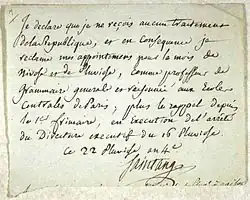 Je declare que je ne reçois aucun traitement
De la Republique, et en consequence je
reclame mes appointemens pour le mois de
Nivose et de Pluviose, comme professeur de
Grammaire general et raisonnée aux Ecoles
Centrales de Paris; plus le rappel depuis
le 1er frimaire, en execution de l'arreté
du Directoire executif du 16 Pluviose.
Ce 22 Pluviose an 4e